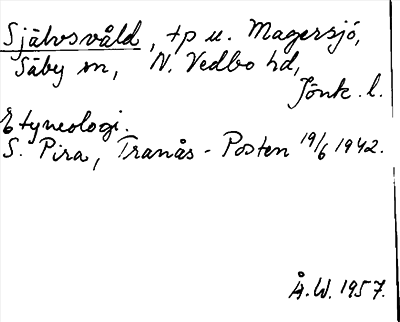 Självsvåld, tp u. Magersjö,
Säby sn, N. Vedbo hd,
Jönk. l.
Etymologi.
S. Pira, Tranås-Posten 19/6 1942.
Å.W. 1957.